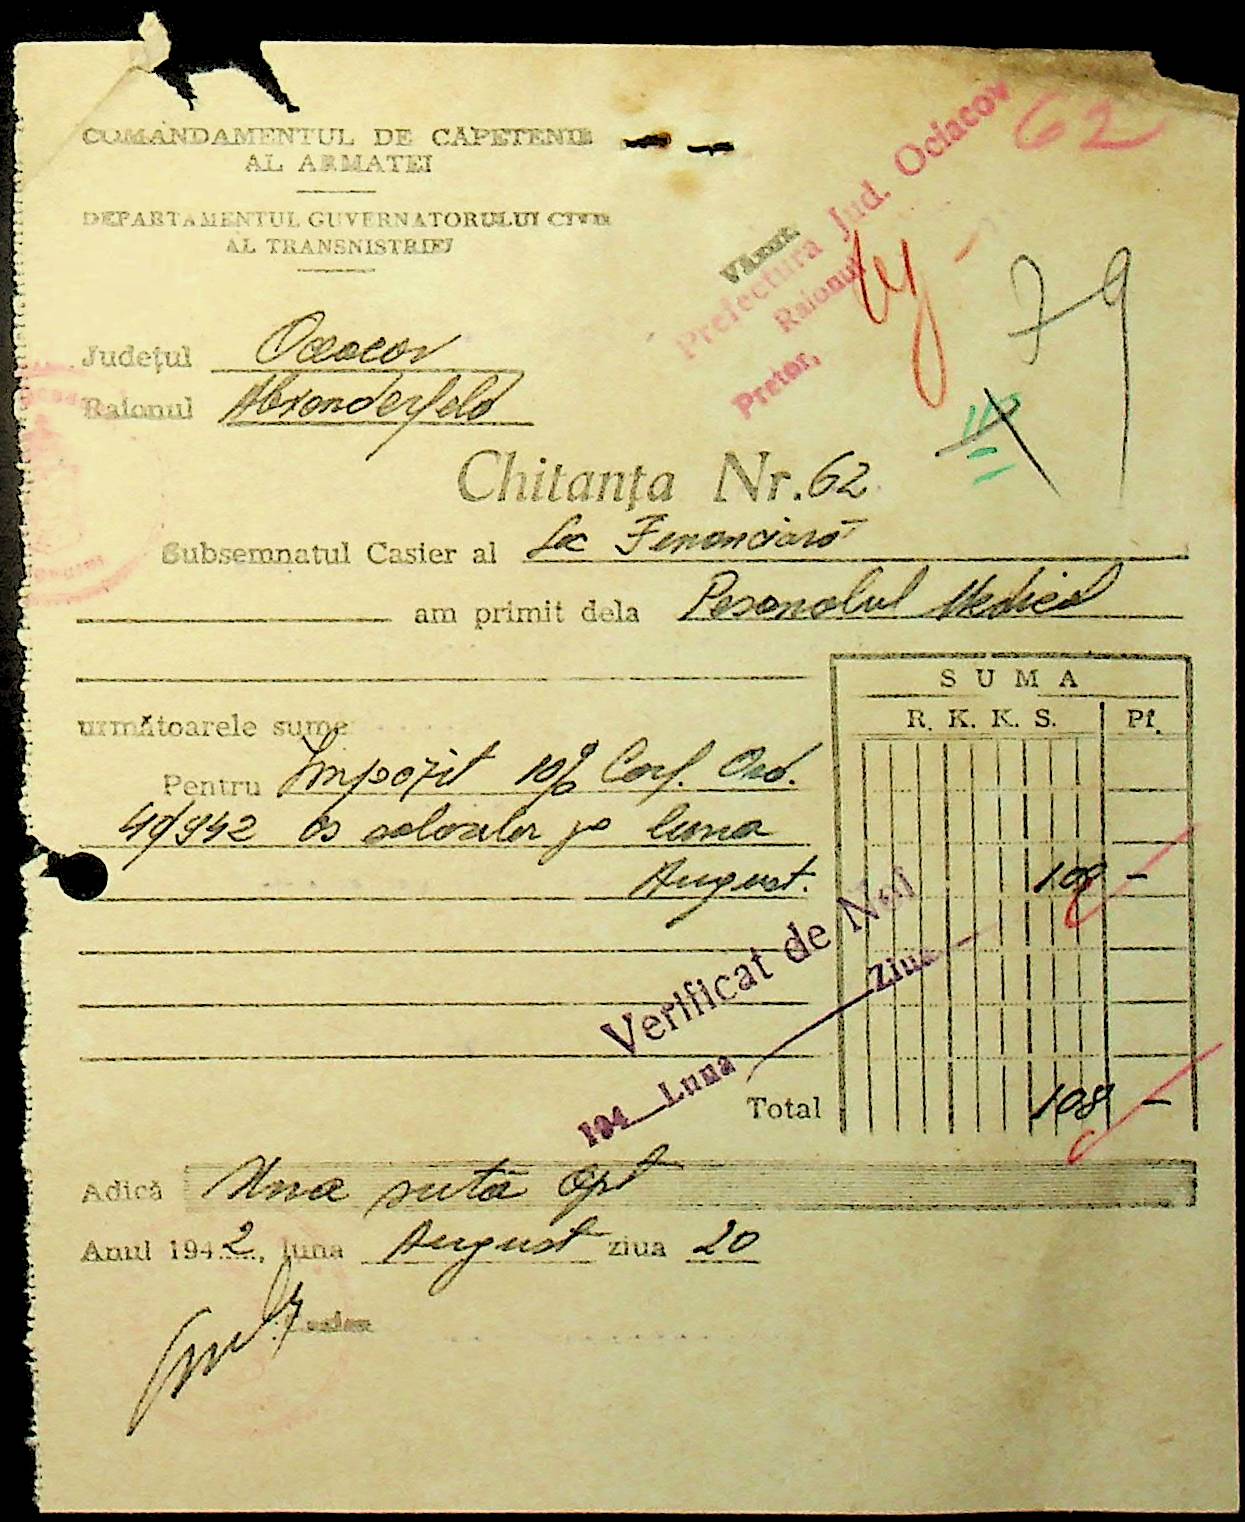 COMANDAMENTUL DE CAPETENIE
AL ARMATEI
DEPARTAMENTUL GUVERNATORULUI CIVIL
AL TRANSNISTRIEI
62
Văzut.
Prefectura Jud. Ociacov
Raionul
Pretor,
79
Județul Oceacov
Raionul Alexanderfeld
Chitanța Nr. 62
Subsemnatul Casier al Sec Financiară
am primit dela Pesonalul Medical
următoarele sume
SUMA
R. K. K. S. Pf.
Pentru Impozit 10% Conf. Ord.
49/942 as salariilor pe luna
August. 108 -
Verificat de Noi
194 Luna Ziua
Total 108 -
Adică Una sută opt
Anul 1942, luna August ziua 20
Casier